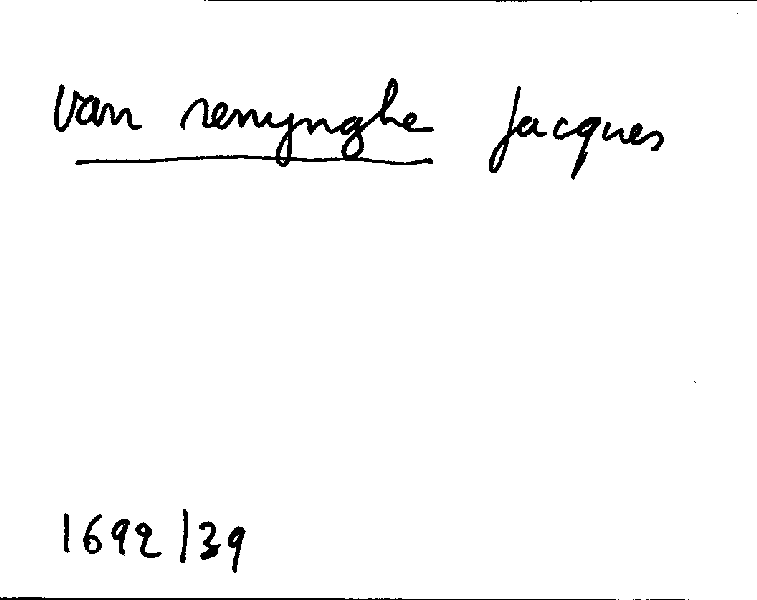 van renynghe Jacques
1692/39